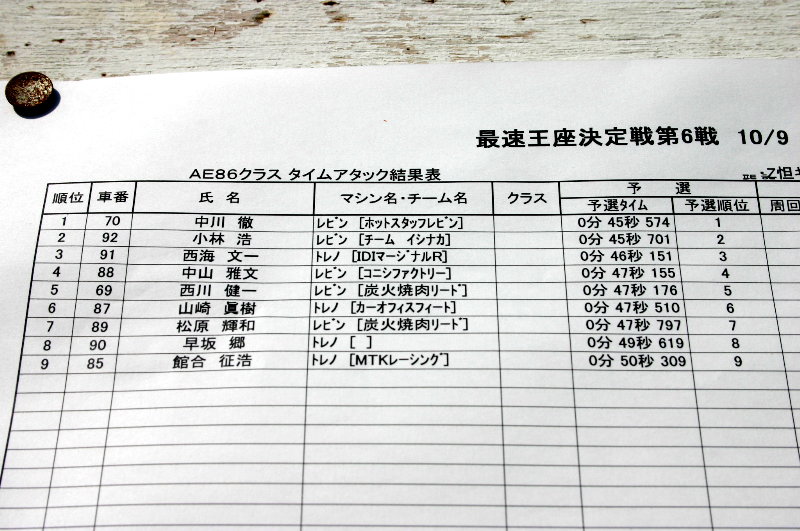 最速王座決定戦第6戦 10/9
AE86クラス タイムアタック結果表
順位 車番 氏 名 マシン名・チーム名 クラス 予 選
予選タイム 予選順位 周回
1 70 中川 徹 レビン [ホットスタッフレビン] 0分 45秒 574 1
2 92 小林 浩 レビン [チーム イシナカ] 0分 45秒 701 2
3 91 西海 文一 トレノ [IDIマージナルR] 0分 46秒 151 3
4 88 中山 雅文 レビン [コニシファクトリー] 0分 47秒 155 4
5 69 西川 健一 レビン [炭火焼肉リード] 0分 47秒 176 5
6 87 山崎 眞樹 トレノ [カーオフィスフィート] 0分 47秒 510 6
7 89 松原 輝和 レビン [炭火焼肉リード] 0分 47秒 797 7
8 90 早坂 郷 トレノ [ ] 0分 49秒 619 8
9 85 館合 征浩 トレノ [MTKレーシング] 0分 50秒 309 9